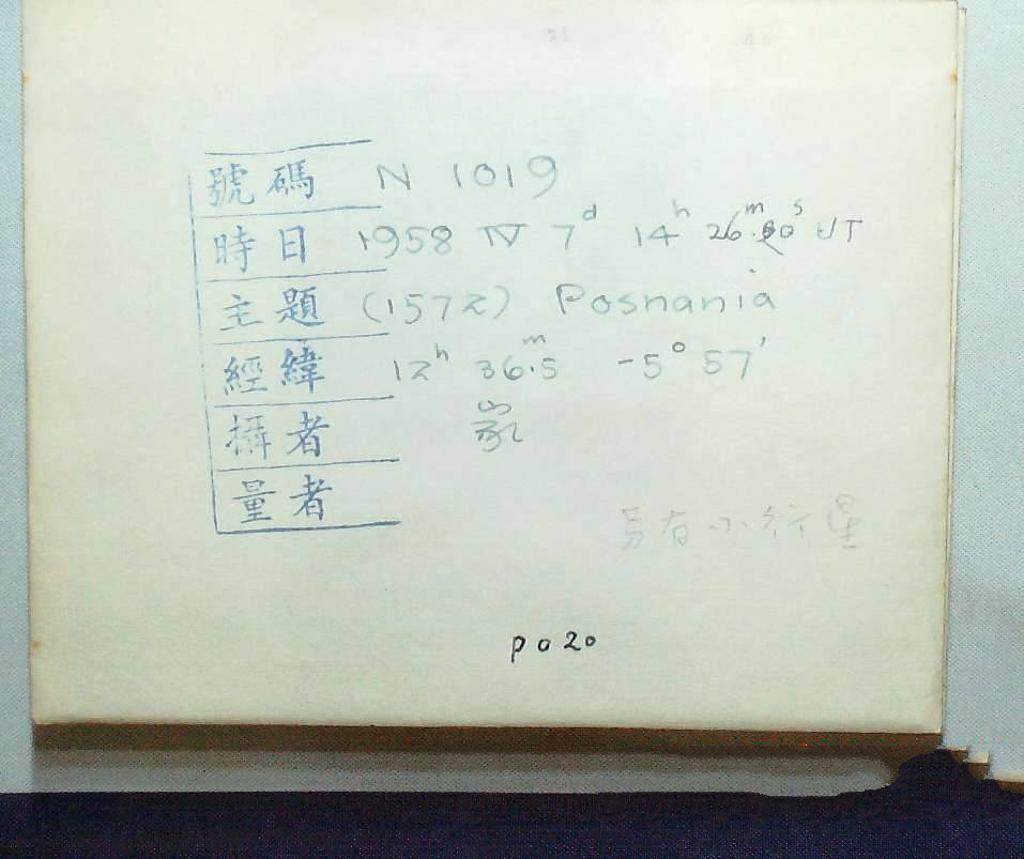 號碼 N 1019
時日 1958 IV 7d 14h 26m.80s UT
主題 (1572) Posnania
經緯 12h 36m.5 -5° 57'
攝者
量者
另有小行星
p020